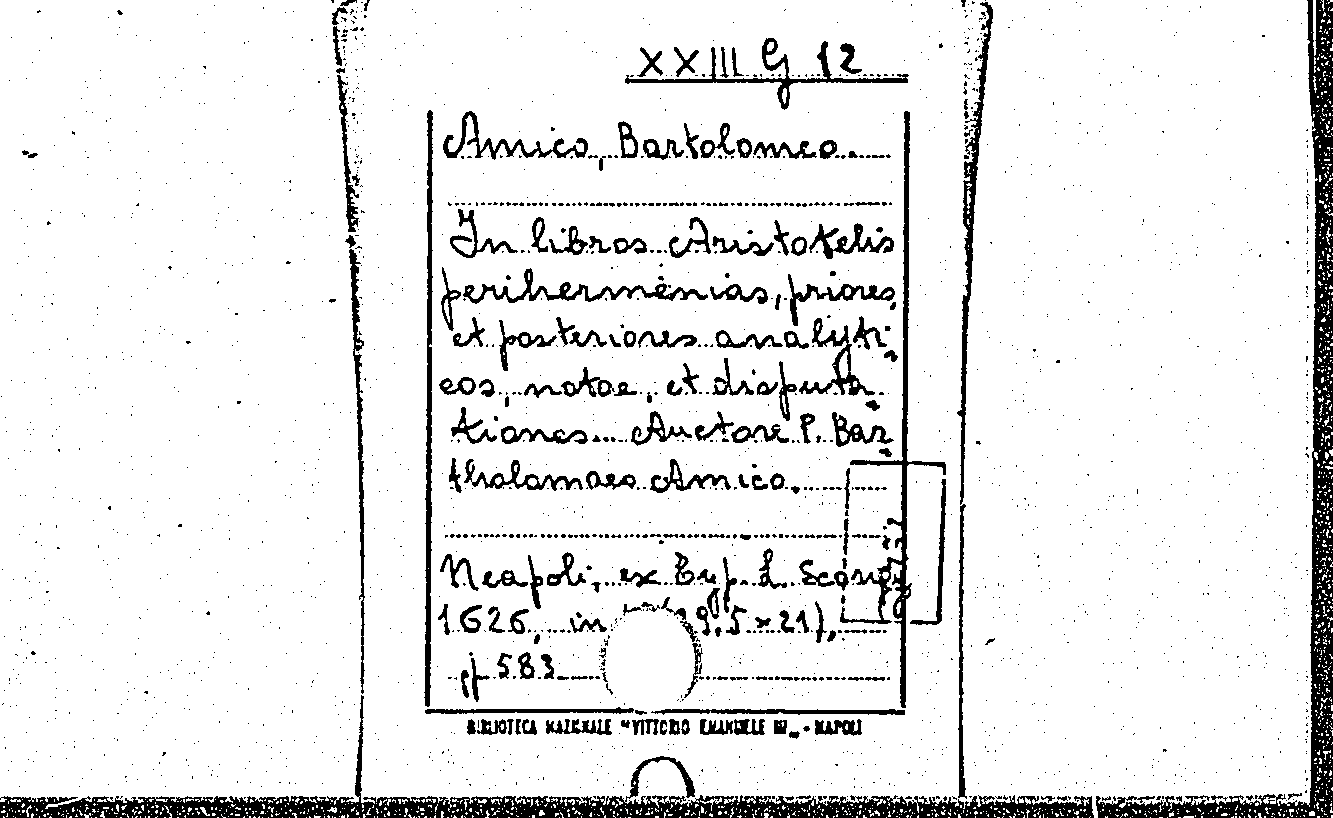 XXIII G 12
Amico, Bartolomeo.
In libros Aristotelis
perihermenias, priores,
et posteriores analyti-
cos, notae, et disputa-
tiones... Auctore P. Bar-
tholomaeo Amico.
Neapoli, ex Typ. L. Scorig
1626, in 9,5 × 21),
pp 583
BIBLIOTECA NAZIONALE "VITTORIO EMANUELE III" - NAPOLI